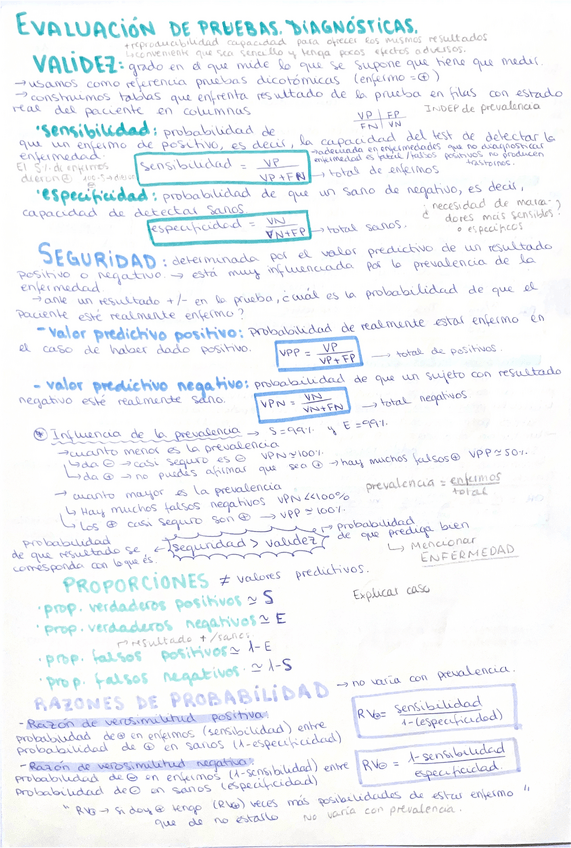 EVALUACIÓN DE PRUEBAS DIAGNÓSTICAS.
+reproducibilidad capacidad para ofrecer los mismos resultados
+conveniente que sea sencillo y tenga pocos efectos adversos.
VALIDEZ: grado en el que mide lo que se supone que tiene que medir.
→usamos como referencia pruebas dicotómicas (enfermo = ⊕)
→construimos tablas que enfrenta resultado de la prueba en filas con estado
real del paciente en columnas
VP | FP
FN | VN
INDEP de prevalencia
·sensibilidad: probabilidad de
que un enfermo de positivo, es decir, la capacidad del test de detectar la
enfermedad.
→adecuada en enfermedades que no diagnosticar
enfermedad es fatal / falsos positivos no producen
trastornos.
El S% de enfermos
dieron ⊕
sensibilidad = VP / VP+FN → total de enfermos
·especificidad: probabilidad de que un sano de negativo, es decir,
capacidad de detectar sanos
especificidad = VN / VN+FP → total sanos.
¿necesidad de marca-
dores más sensibles
o específicos?
SEGURIDAD: determinada por el valor predictivo de un resultado
positivo o negativo. → está muy influenciada por la prevalencia de la
enfermedad
→ante un resultado +/- en la prueba, ¿cuál es la probabilidad de que el
paciente esté realmente enfermo?
-valor predictivo positivo: probabilidad de realmente estar enfermo en
el caso de haber dado positivo.
VPP = VP / VP+FP → total de positivos.
-valor predictivo negativo: probabilidad de que un sujeto con resultado
negativo esté realmente sano.
VPN = VN / VN+FN → total negativos
Influencia de la prevalencia → S=99% y E=99%.
→cuanto menor es la prevalencia
↳da ⊖ → casi seguro es ⊖ VPN≃100%
↳da ⊕ → no puedes afirmar que sea ⊕ → hay muchos falsos ⊕ VPP≃50%.
→cuanto mayor es la prevalencia
↳Hay muchos falsos negativos VPN<<100%
↳Los ⊕ casi seguro son ⊕ → VPP≃100%
prevalencia = enfermos / total
probabilidad
de que resultado se
corresponda con lo que es.
← seguridad > validez →
probabilidad
de que prediga bien
↳ Mencionar
ENFERMEDAD
PROPORCIONES ≠ valores predictivos.
Explicar caso
·prop. verdaderos positivos ≃ S
·prop. verdaderos negativos ≃ E
→resultado +/sanos
·prop. falsos positivos ≃ 1-E
·prop. falsos negativos ≃ 1-S
RAZONES DE PROBABILIDAD → no varía con prevalencia.
-Razón de verosimilitud positiva:
probabilidad de ⊕ en enfermos (sensibilidad) entre
probabilidad de ⊕ en sanos (1-especificidad)
RV⊕ = sensibilidad / 1-(especificidad)
-Razón de verosimilitud negativa:
probabilidad de ⊖ en enfermos (1-sensibilidad) entre
probabilidad de ⊖ en sanos (especificidad)
RV⊖ = 1-sensibilidad / especificidad
"RV⊕ → si doy ⊕ tengo (RV⊕) veces más posibilidades de estar enfermo"
que de no estarlo
No varía con prevalencia.